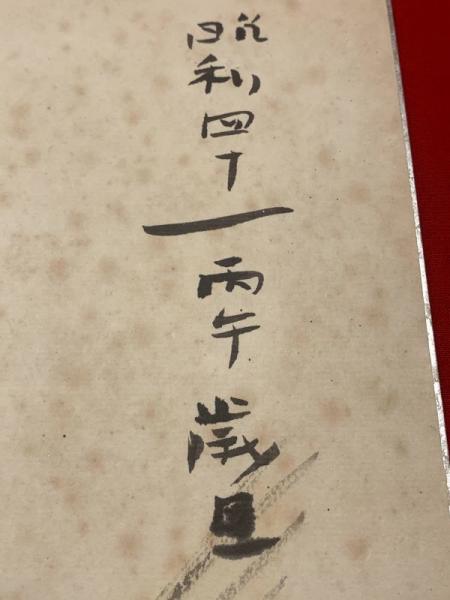 昭和四十一丙午歳旦